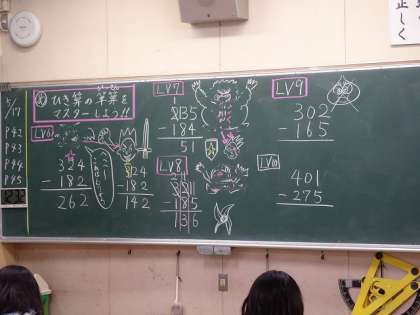 正しく
5/17
P42
P43
P44
P45
ひき算の筆算を
マスターしよう!!
LV6
324
- 182
262
324
- 182
142
LV7
235
- 184
51
LV8
- 185
36
LV9
302
- 165
LV10
401
- 275